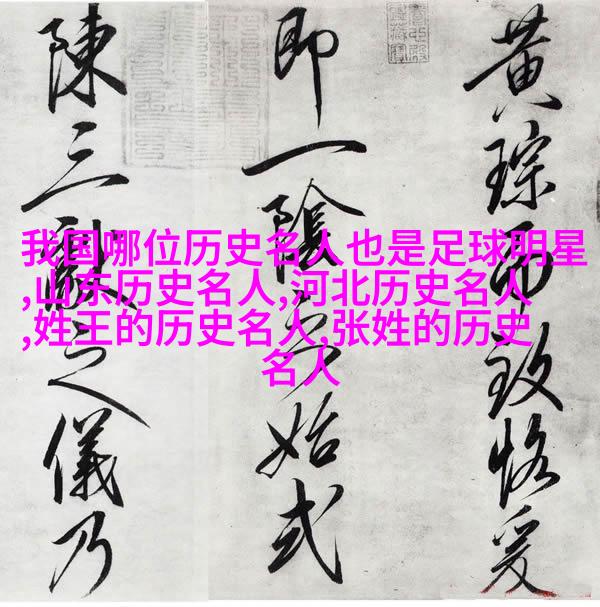 我国哪位历史名人也是足球明星
,山东历史名人,河北历史名人
,姓王的历史名人,张姓的历史
名人
黄琮而致恪爰
即一陰之始式
陳三獻之儀乃